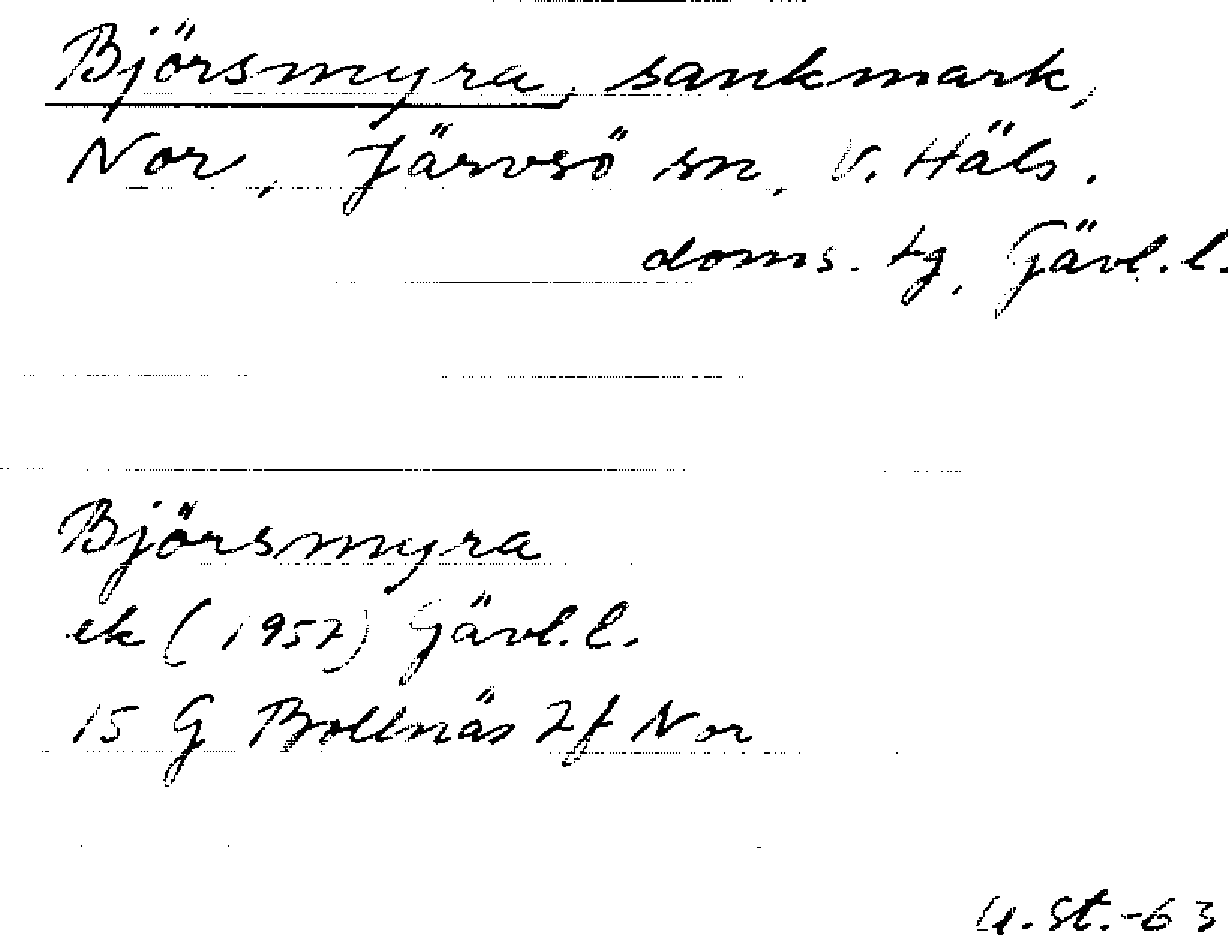 Björsmyra, sankmark,
Nor, Järvsö sn, V. Häls.
doms. tg, Gävl.l.
Björsmyra
ek (1957) Gävl.l.
15 G Bollnäs 2f Nor
U.St.-63